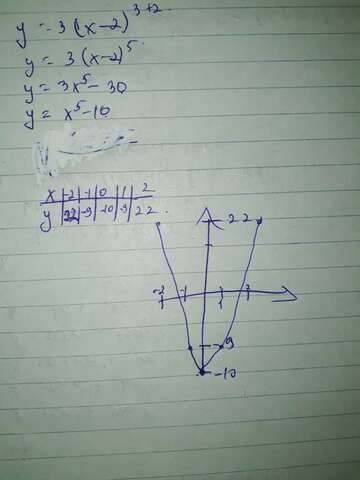 y = 3(x-2)^3+2
y = 3(x-2)^5
y = 3x^5 - 30
y = x^5 - 10
x | -2 | -1 | 0 | 1 | 2
y | 22 | -9 | -10 | -9 | 22
22
-2 -1 1
-9
-10